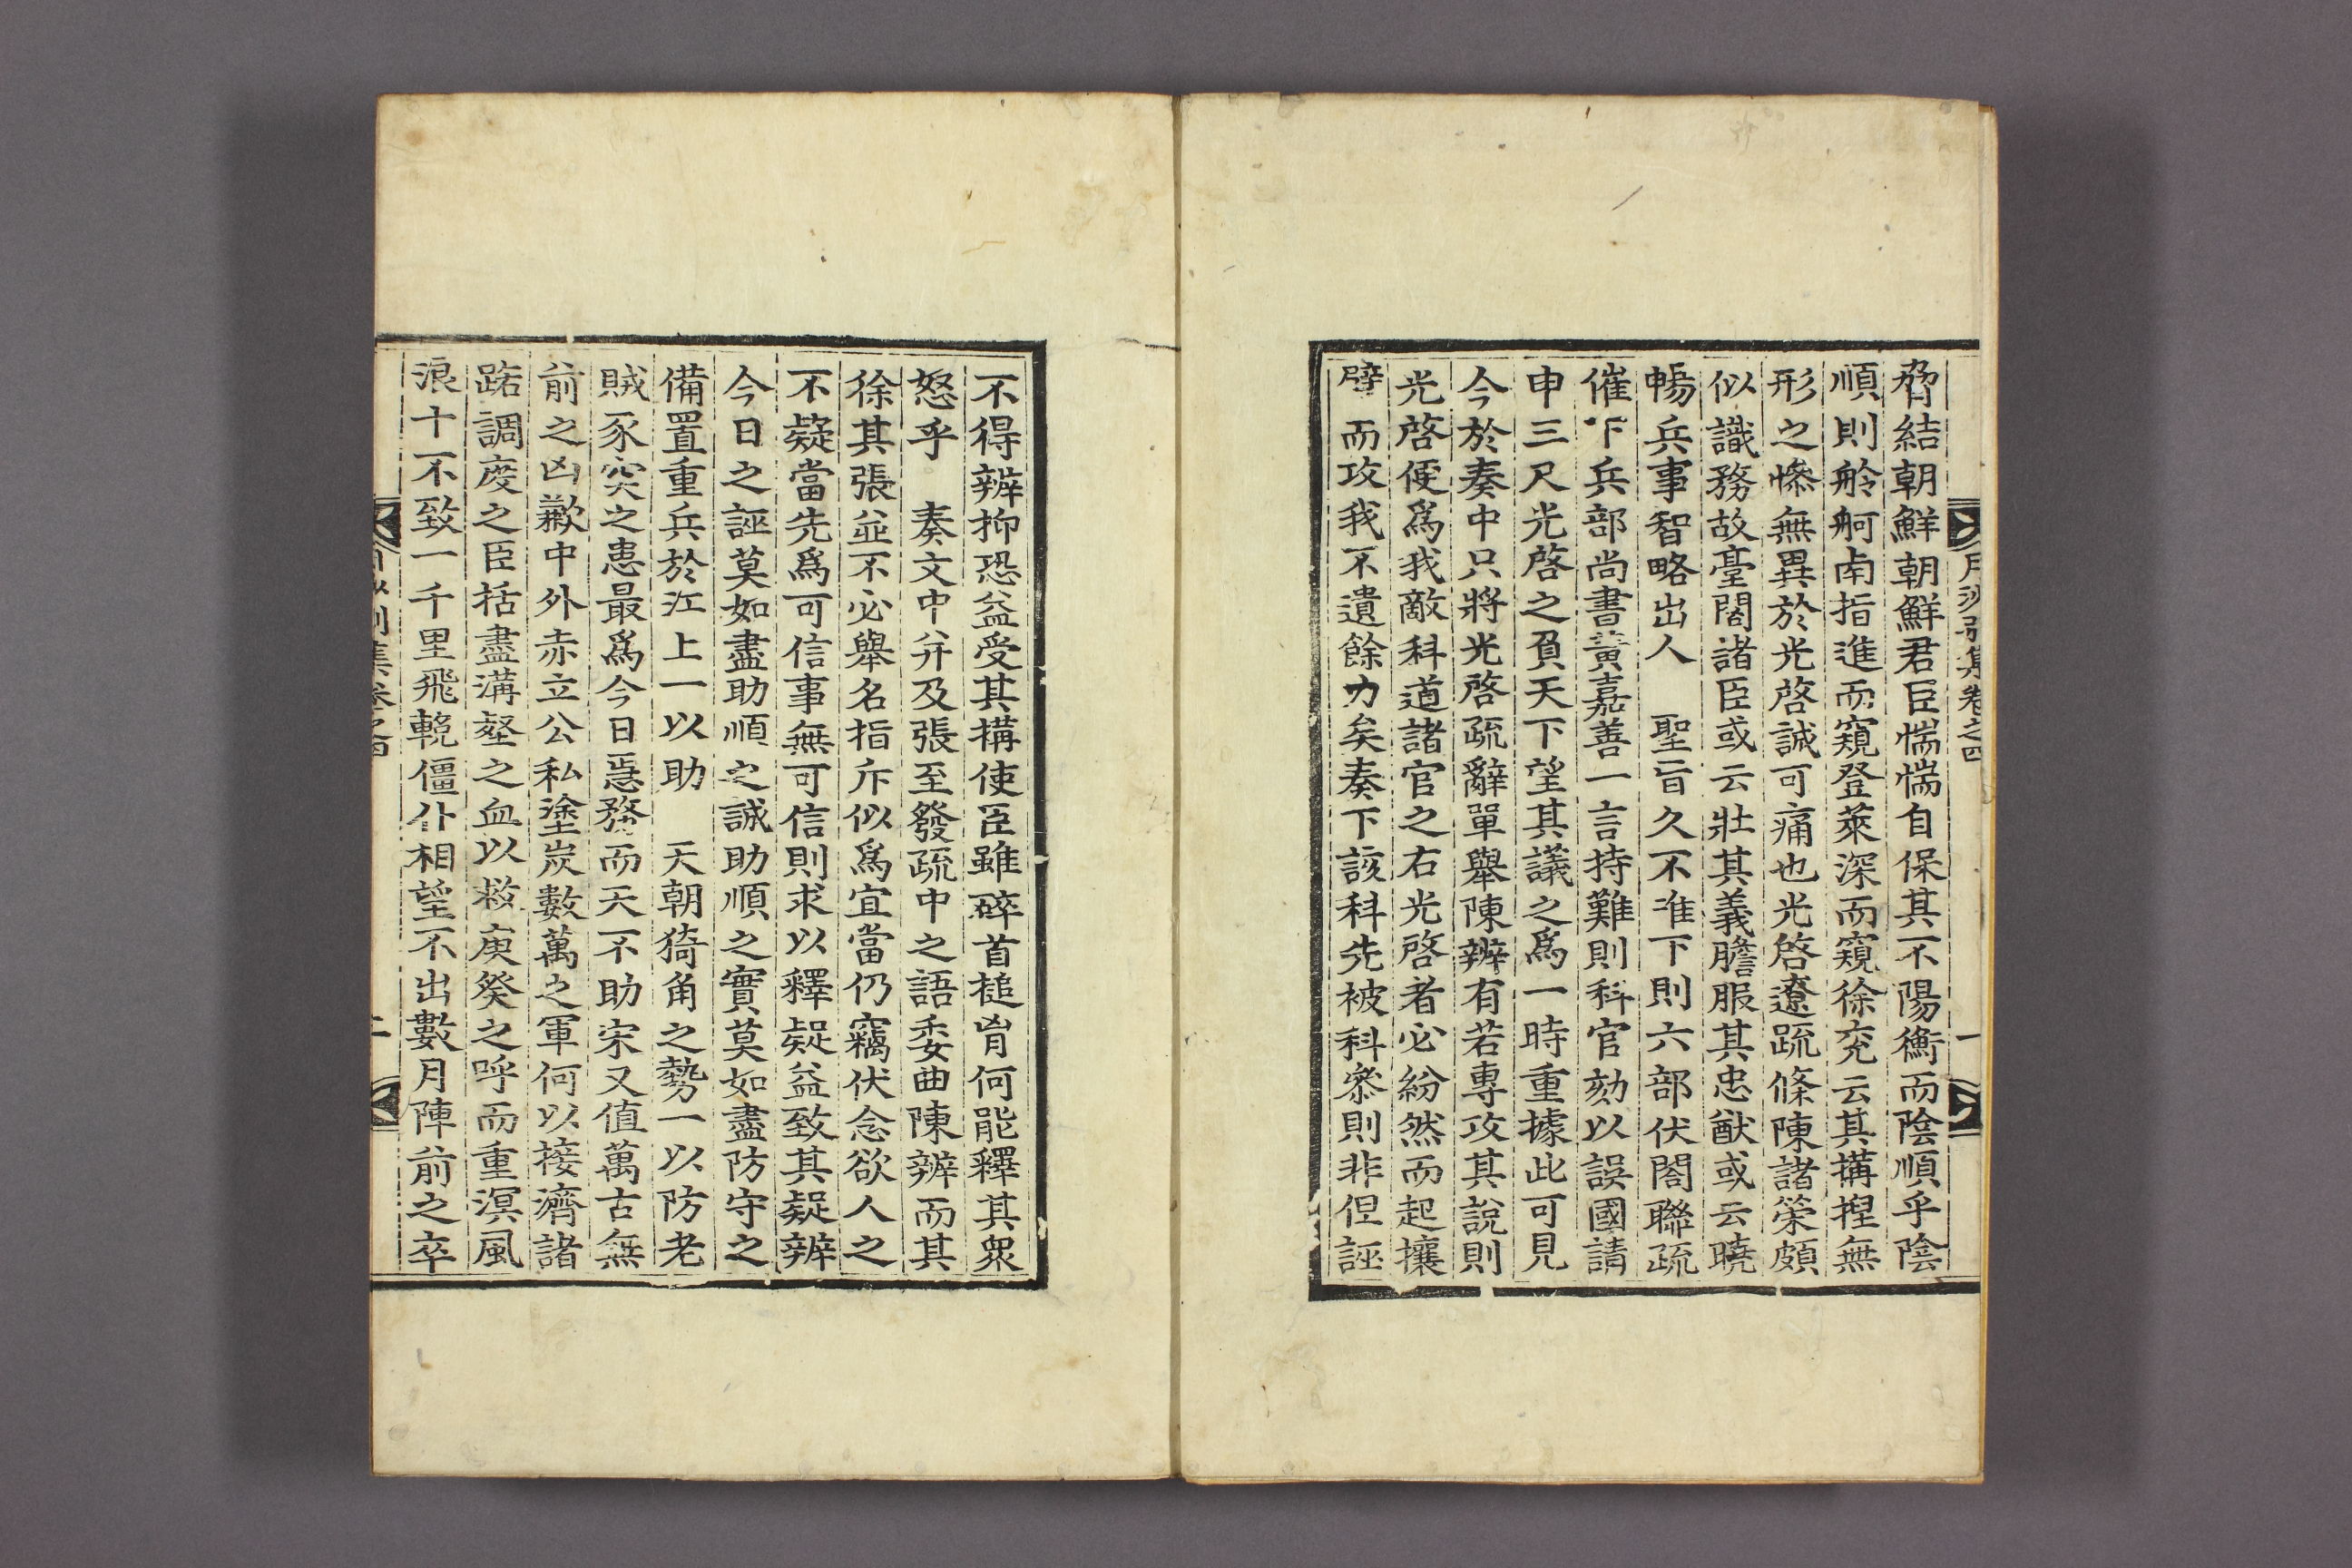 月沙別集卷之四
一
脅結朝鮮朝鮮君臣惴惴自保其不陽衡而陰順乎陰
順則舲舸南指進而窺登萊深而窺徐兗云其搆揑無
形之慘無異於光啓誠可痛也光啓遼疏條陳諸策頗
似識務故臺閣諸臣或云壯其義膽服其忠猷或云曉
暢兵事智略出人　聖旨久不准下則六部伏閤聯疏
催下兵部尚書黃嘉善一言持難則科官劾以誤國請
申三尺光啓之負天下望其議之爲一時重據此可見
今於奏中只將光啓疏辭單擧陳辨有若專攻其說則
光啓便爲我敵科道諸官之右光啓者必紛然而起攘
臂而攻我不遺餘力矣奏下該科先被科參則非但誣
不得辨抑恐益受其搆使臣雖碎首搥胷何能釋其衆
怒乎　奏文中幷及張至發疏中之語委曲陳辨而其
徐其張並不必擧名指斥似爲宜當仍竊伏念欲人之
不疑當先爲可信事無可信則求以釋疑益致其疑辨
今日之誣莫如盡助順之誠助順之實莫如盡防守之
備置重兵於江上一以助　天朝猗角之勢一以防老
賊豕突之患最爲今日惡務而天不助宋又值萬古無
前之凶歉中外赤立公私塗炭數萬之軍何以接濟諸
路調度之臣括盡溝壑之血以救庚癸之呼而重溟風
浪十不致一千里飛輓僵仆相望不出數月陣前之卒
月沙別集卷之四
二